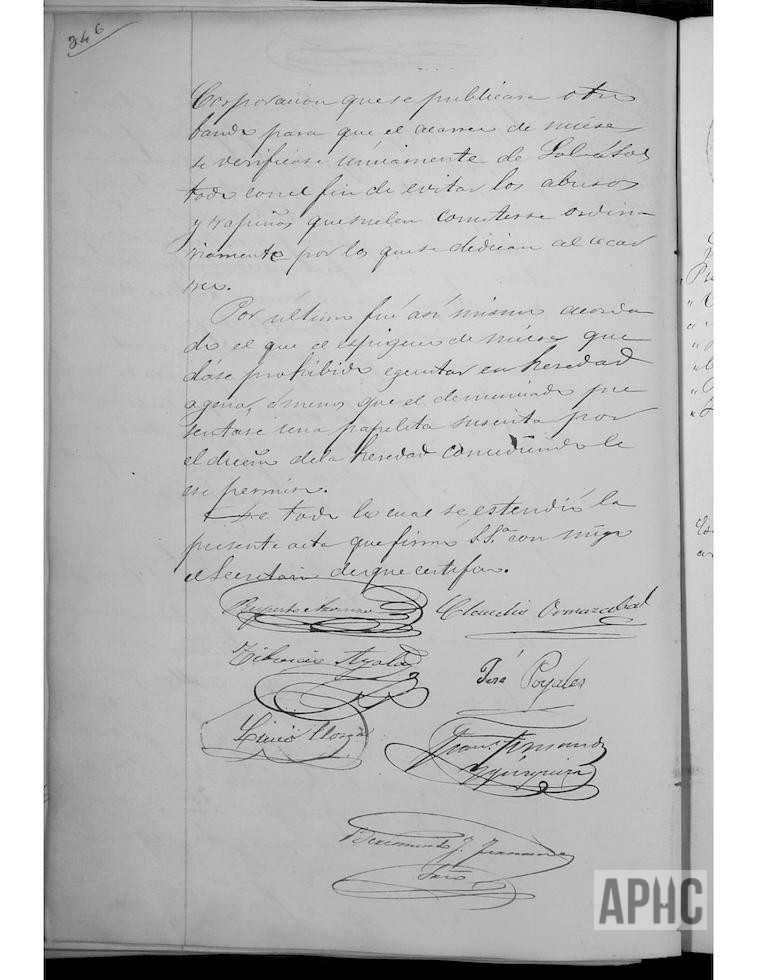 346
Corporacion que se publicase otro
bando para que el acarreo de mieses
se verificase únicamente de Sol á Sol
todo con el fin de evitar los abusos
y rapiñas que suelen cometerse ordina
riamente por los que se dedican al acar
reo.
Por último fué así mismo acorda
do el que el espigueo de mieses que
dase prohibido egecutar en heredad
agena, á menos que el denunciado pre
sentase una papeleta suscrita por
el dueño de la heredad concediendole
ese permiso.
De todo lo cual se estendió la
presente acta que firmó S.Sª con migo
el Secretario de que certifico.
Ruperto
Claudio Ormazabal
Tiburcio Ayala
José Poyales
Lucio
Franco Fernando
Yzquierra
J. Fernandez
Srio
APHC